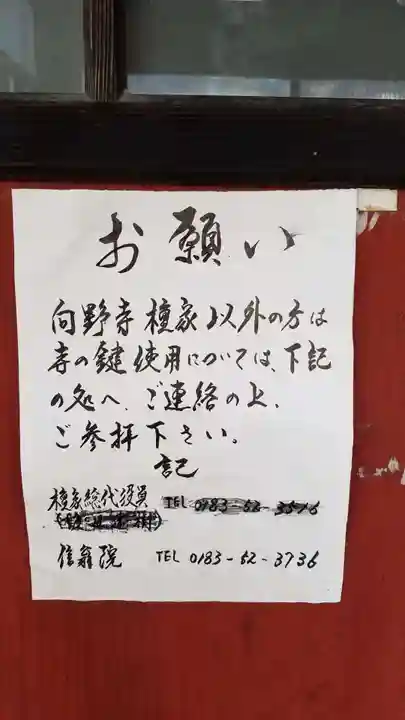 お願い
向野寺檀家以外の方は
寺の鍵使用については、下記
の処へ、ご連絡の上、
ご参拝下さい。
記
檀家総代役員 TEL 0183-52-3516
信翁院 TEL 0183-52-3736